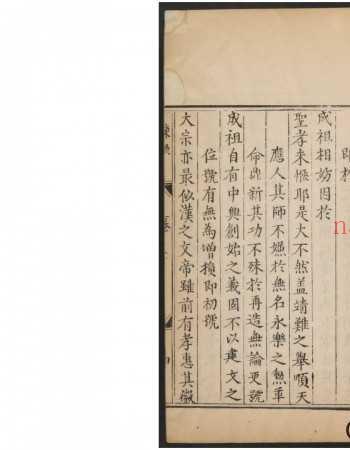 即於
成祖相妨因於
聖孝未愜耶是大不然蓋靖難之舉順天
應人其師不嫌於無名永樂之勲革
命鼎新其功不殊於再造無論更號
成祖自有中興創始之義固不以建文之
位號有無為增損即初號
大宗亦最似漢之文帝雖前有孝惠其徽